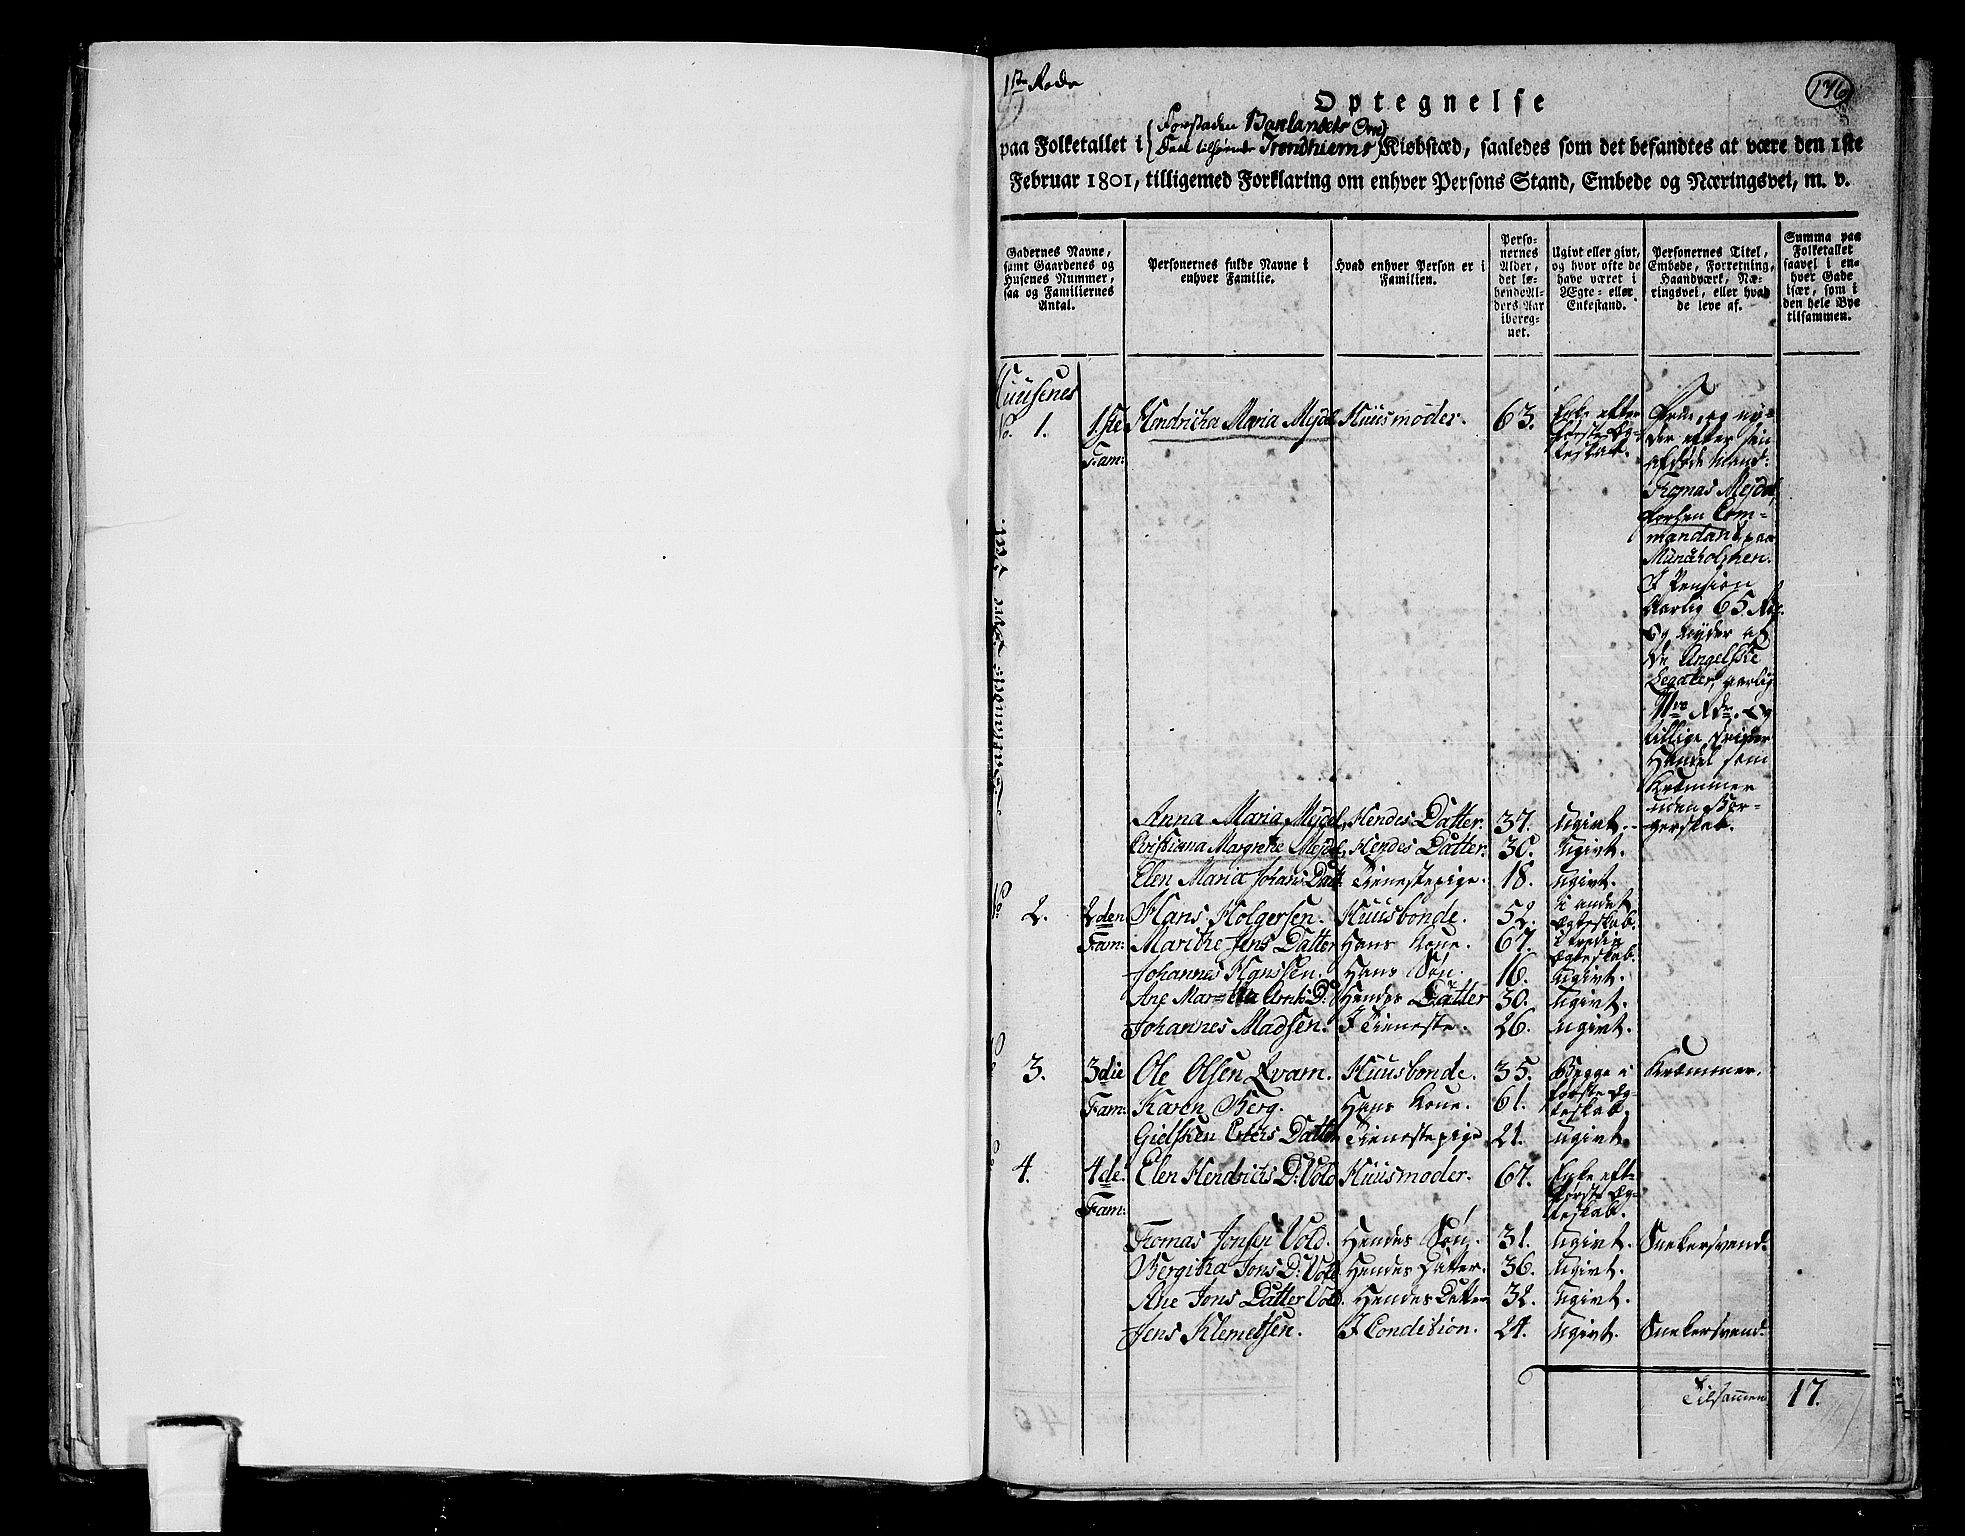 1ste Rode
176
Optegnelse
Forstaden Baklandets Om
paa Folketallet i Trondhiems Kiøbstæd, saaledes som det befandtes at være den 1ste
Februar 1801, tilligemed Forklaring om enhver Persons Stand, Embede og Næringsvei, m. v.
Gadernes Navne, samt Gaardenes og Husenes Nummer, saa og Familiernes Antal.
Personernes fulde Navne i enhver Familie.
Hvad enhver Person er i Familien.
Personernes Alder, det løbende Alders Aar iberegnet.
Ugivt eller givt, og hvor ofte de have været i Ægte- eller Enkestand.
Personernes Titel, Embede, Forretning, Haandværk, Næringsvei, eller hvad de leve af.
Summa paa Folketallet saavel i enhver Gade især, som i den hele Bye tilsammen.
Huusenes
No. 1. 1ste Fam: Hendricha Maria Mejdel Huusmoder. 63. Enke efter første Ægteskab.
Enke, og nyder efter sin afdøde Mand: Thomas Mejdel, forhen Commandant paa Munckholmen. I Pension Aarlig 65 Rdr. Og nyder af De Angelske Legater, aarlig Rdr. Og tillige driver Handel som Kræmmer uden Borgerskab.
Anna Maria Mejdel, Hendes Datter. 37. Ugivt.
Cristiana Margrethe Mejdel, Hendes Datter. 36. Ugivt.
Elen Maria Johans Datt: Tienestepige. 18. Ugivt.
No. 2. 2den Fam: Hans Holgersen. Huusbonde. 52. i andet Ægteskab.
Marithe Jens Datter Hans Kone. 67. i tredie Ægteskab.
Johannes Hanssen. Hans Søn. 16. Ugivt.
Ane Margretha D: Hendes Datter 30. Ugivt.
Johannes Madsen. I Tieneste. 26. Ugivt.
No. 3. 3die Fam: Ole Olsen Qvam. Huusbonde. 35. Begge i første Ægteskab. Kræmmer.
Karen Berg. Hans Kone. 61.
Gielsken Datter Tienestepige 21. Ugivt.
No. 4. 4de Fam: Elen Hendrichs D: Vold Huusmoder. 67. Enke eft: første Ægteskab.
Thomas Jonsen Vold. Hendes Søn. 31. Ugivt. Snekersvend.
Bergitha Jons D: Vold Hendes Datter. 36. Ugivt.
Ane Jons Datter Vold. Hendes Datter 32. Ugivt.
Jens Klemetsen. I Condition. 24. Ugivt. Snekersvend.
Tilsammen 17.